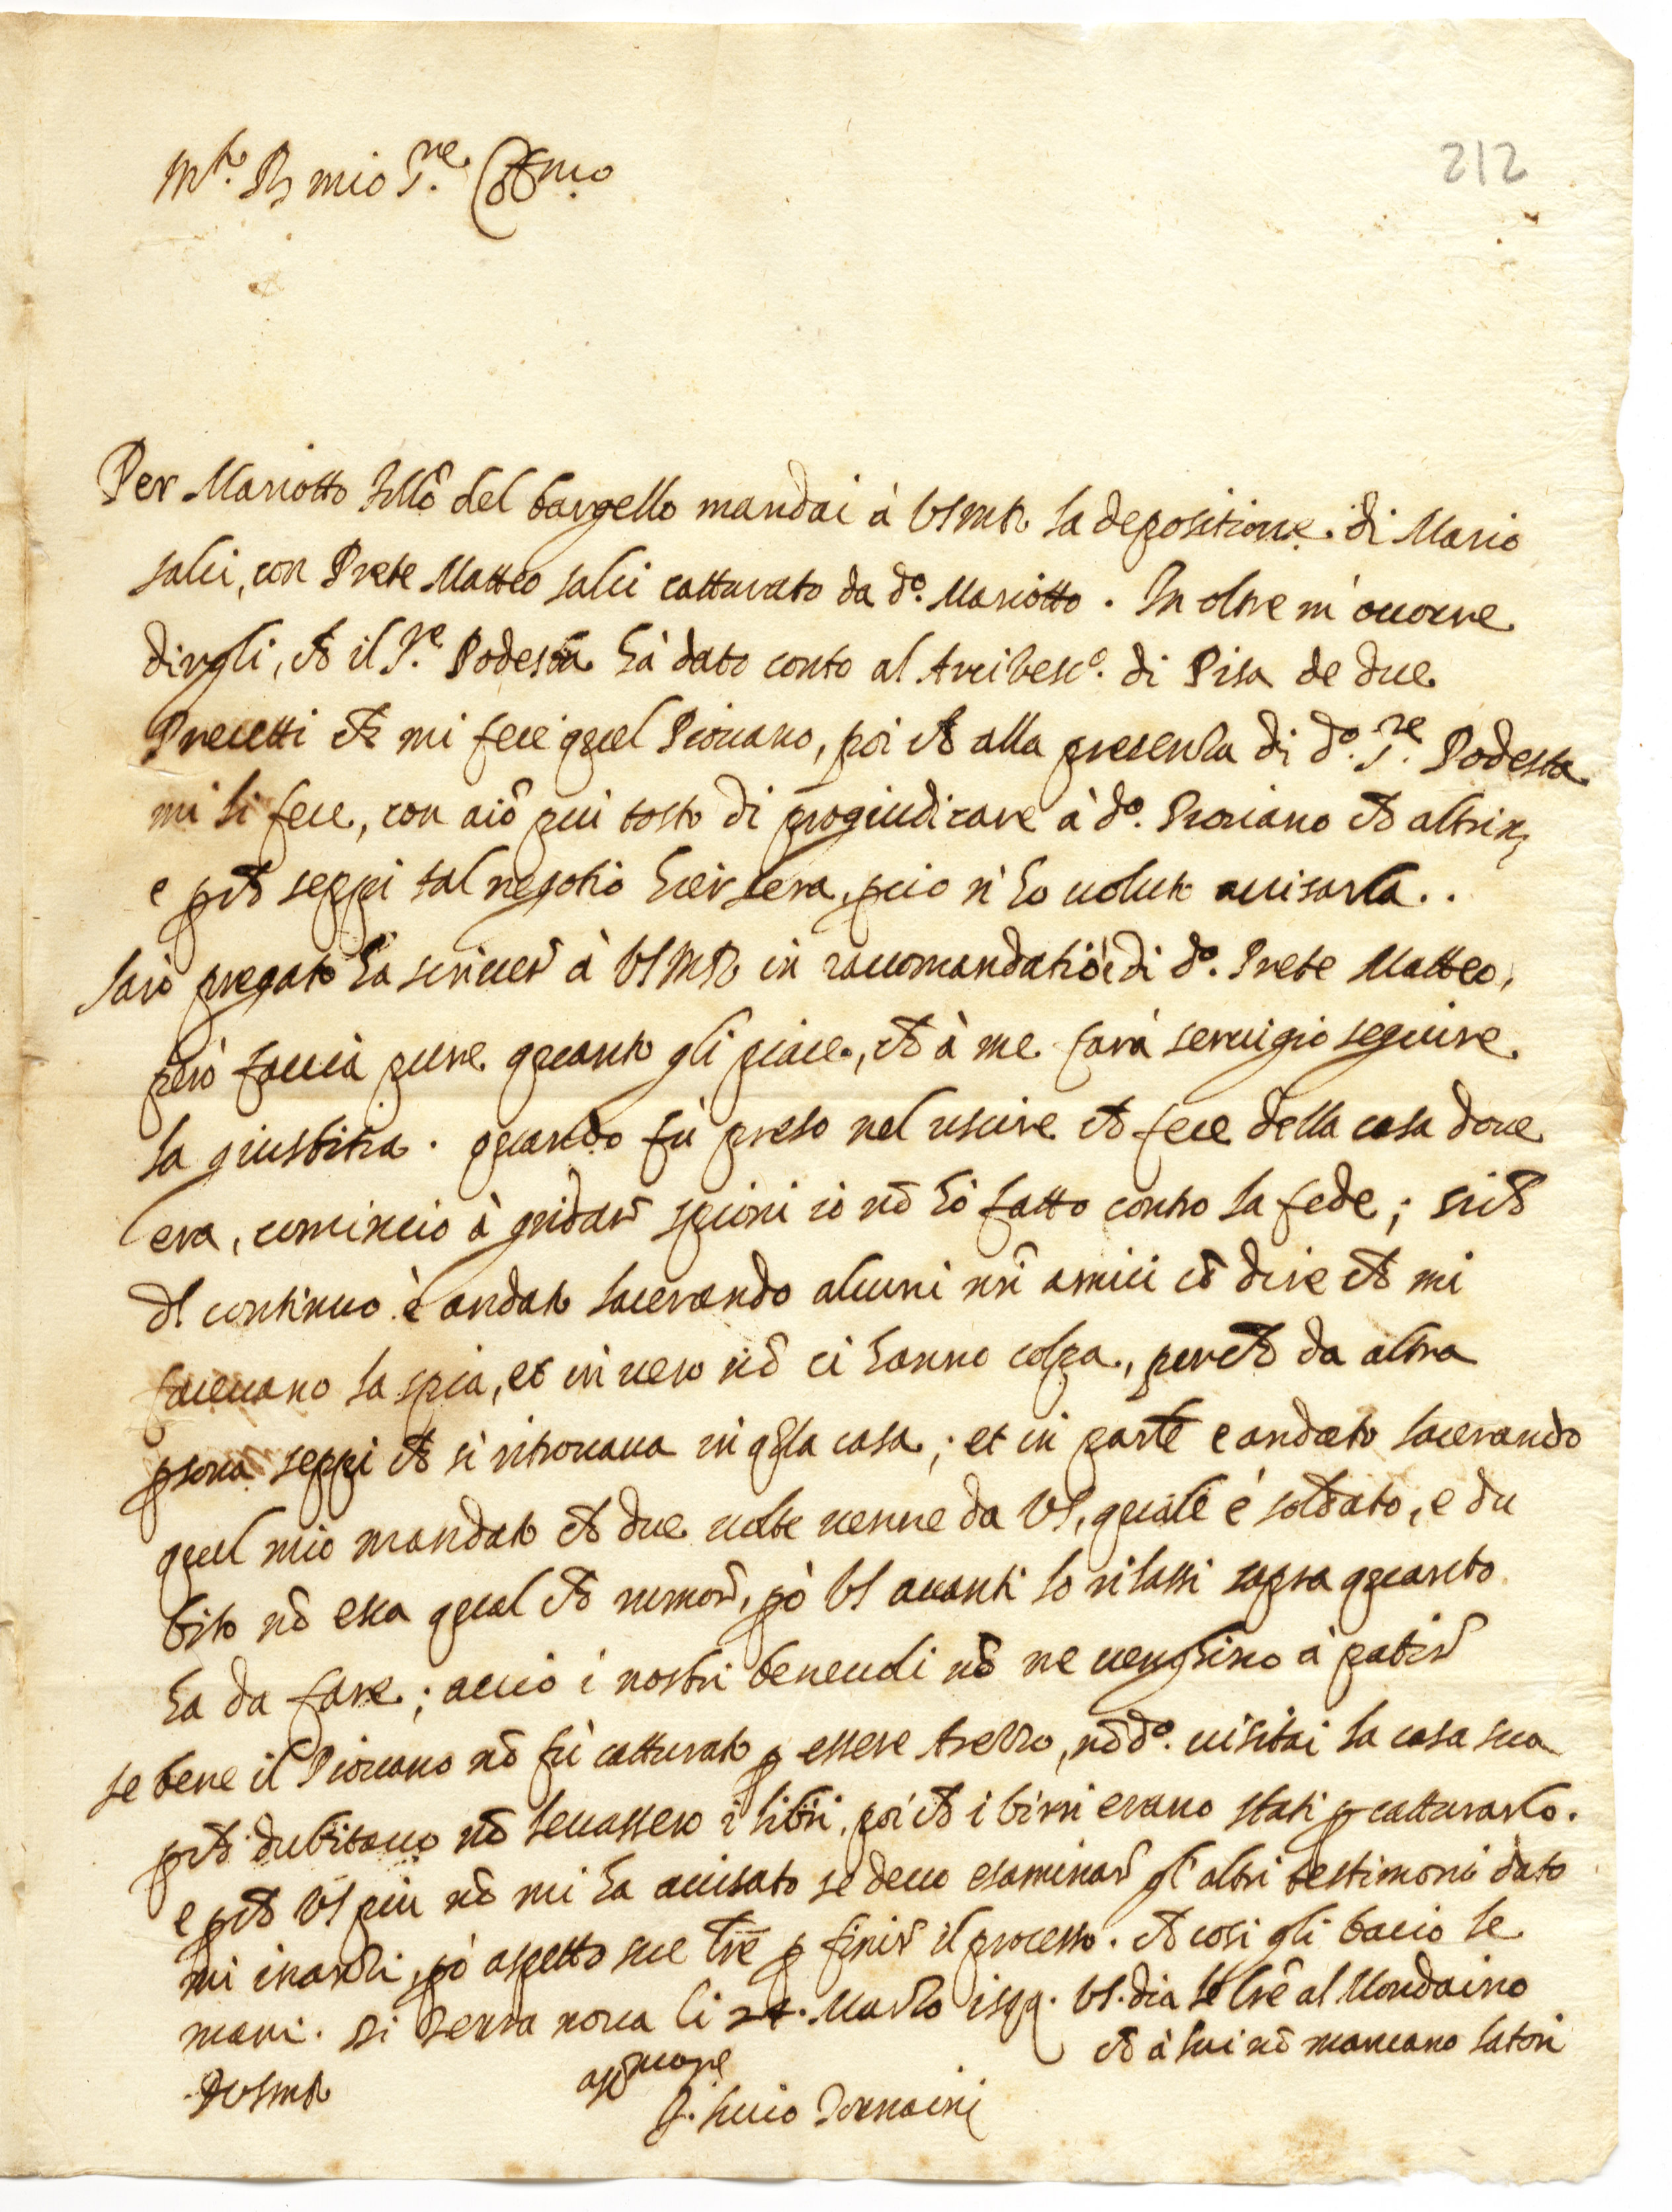 212
Mto. Rdo mio Sre. Ossmo
Per Mariotto fello del bargello mandai à VSMR la depositione di Mario
salvi, con Prete Matteo salvi catturato da do. Mariotto. In oltre m'occorre
dirgli, che il Sre Podestà hà dato conto al Arcivesco. di Pisa de due
Precetti che mi fece quel Piovano, poi che alla presenza di do. Sre Podesta
mi si fece, con aiô piu tosto di progiudicare à do. Piovano che altrim
e pche seppi tal negotio hiersera, pciò n'ho voluto avisarla..
sarò pregato ha scriver à VSMR in raccomandatiōe di do. Prete Matteo,
però faccia pure quanto gli piace, che à me farà servigio seguire
la giustitia. quando fù preso nel uscire che fece della casa dove
era, cominciò à gridar spioni io nō hò fatto contro la fede; siche
del continuo è andato lacerando alcuni nrī amici cō dire che mi
facevano la spia, et in vero nō ci hanno colpa, perche da altra
psona seppi che si ritrovava in qlla casa; et in parte e andato lacerando
quel mio mandato che due volte venne da VS, quale è soldato, e du
bito nō esca qual che rumor, pò VS avanti lo rilassi sapra quanto
ha da fare; acciò i nostri benevoli nō ne venghino à patir
se bene il Piovano nō fù catturato p essere Arezzo, nō do. visitai la casa sua
pche dubitavo nō levassero i libri, poi che i birri erano stati p catturarlo.
e pche VS piu nō mi ha avisato se devo esaminar gl'altri testimoni dato
mi inanzi, pò aspetto sue lrē p finir il processo. che cosi gli bacio le
mani. Di Terra nova li 24. Marzo 1599. VS. dia le lrē al Mondaino
che à lui nō mancano latori
D VSMR
affmo come
F. Lucio Tornaini